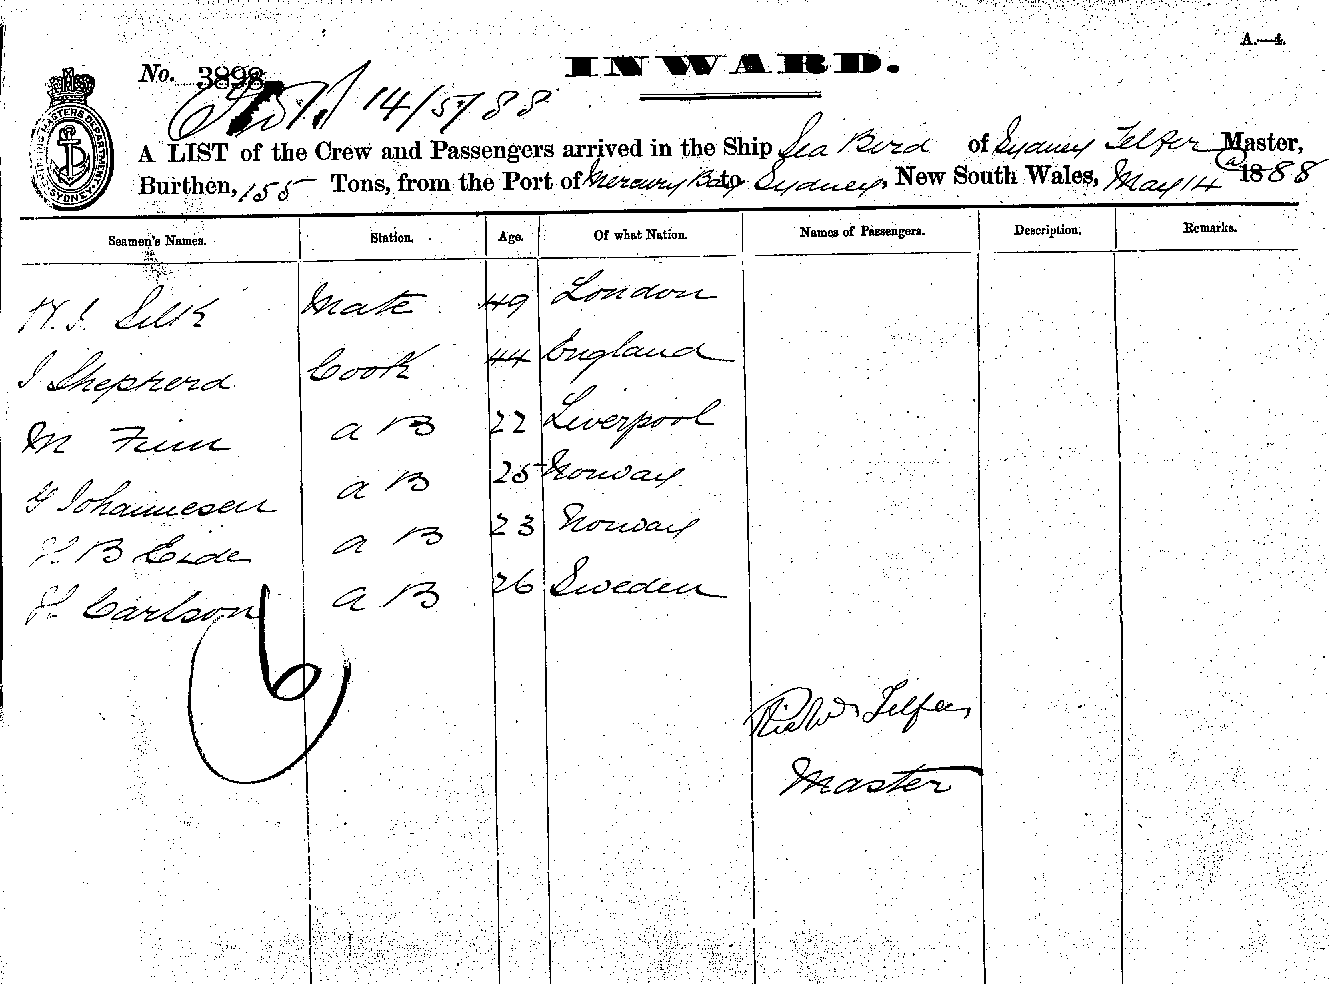 A.—4.
INWARD.
No. 3898
14/5/88
A LIST of the Crew and Passengers arrived in the Ship Sea Bird of Sydney Telfer Master,
Burthen, 155 Tons, from the Port of Mercury Bay to Sydney, New South Wales, May 14 1888
Seamen's Names. Station. Age. Of what Nation. Names of Passengers. Description. Remarks.
W. J. Silk Mate 49 London
J Shepherd Cook 44 England
M Finn A B 22 Liverpool
G Johannesen A B 25 Norway
H B Eide A B 23 Norway
H Carlson A B 26 Sweden
6
Telfer
Master